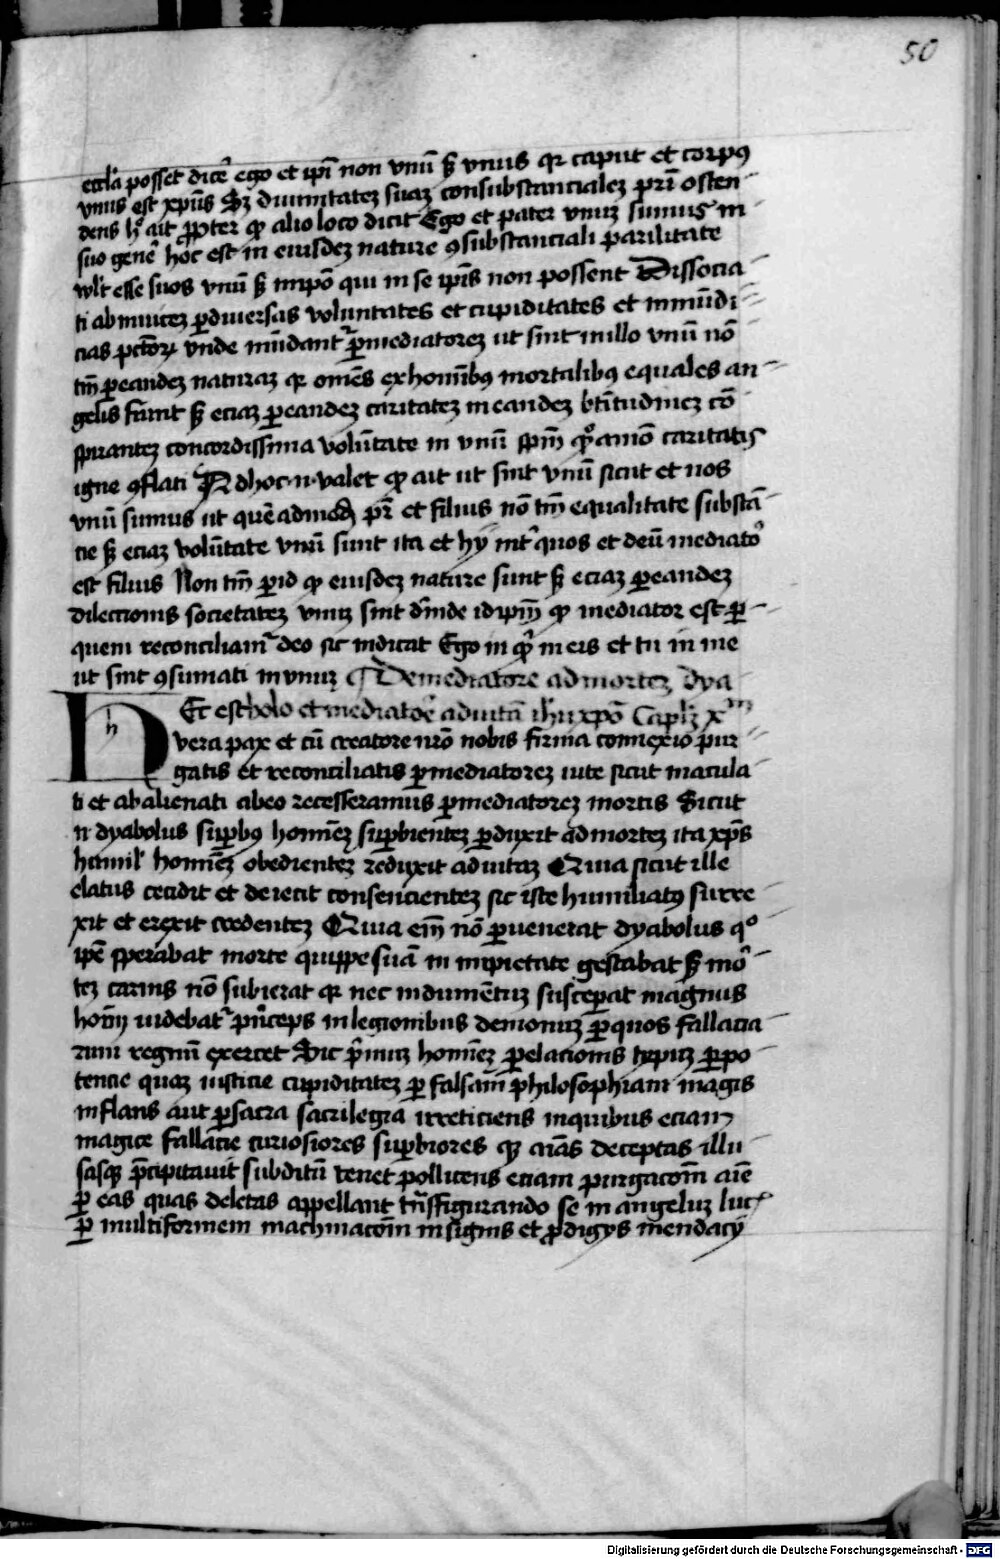 50
eccl'ia posset dic'e ego et ip̄i non vnū sꝫ vnus qr caput et corpꝰ
vnus est xp̄us Sꝫ diuinitateꝫ suaꝫ consubstancialeꝫ pr̄i osten-
dens h' ait ꝓpter qꝫ alio loco dicit Ego et pater vnuꝫ sumus in
suo gen'e hoc est in eiusdeꝫ nature ꝯsubstanciali parilitate
wlt esse suos vnū sꝫ in ip̄o qui in se ip̄is non possent Dissocia-
ti ab inuiceꝫ ꝑ diuersas voluntates et cupiditates et inmūdi-
cias pctōꝝ vnde mūdant' ꝑ mediatoreꝫ ut sint in illo vnū nō
tm̄ ꝑ eandeꝫ naturaꝫ qr omēs ex homībꝰ mortalibꝰ equales an-
gelis fiunt sꝫ eciaꝫ ꝑ eandeꝫ caritateꝫ in eandeꝫ btītudineꝫ cō-
spiranteꝫ concordissima volūtate in vnū sp̄m quodāmō caritatis
igne ꝯflati Ad hoc .n. valet qꝫ ait ut sint vnū sicut et nos
vnū sumus ut quēadmodū pr̄ et filius nō tm̄ equalitate substā-
cie sꝫ eciaꝫ volūtate vnū sunt ita et hy int' quos et deū mediatoꝛ
est filius Non tm̄ ꝑ id qꝫ eiusdeꝫ nature sunt sꝫ eciaꝫ ꝑ eandeꝫ
dilectionis societateꝫ vnuꝫ sint d'inde id ip̄m qꝫ mediator est ꝑ-
quem reconciliam' deo sic indicat Ego inq' in eis et tu in me
ut sint ꝯsumati in vnuꝫ De mediatore ad morteꝫ dya-
bolo et mediatoꝛe ad uitā ih'u xp̄o Cap'lꝫ xiiiᵐ
Hec est vera pax et cū creatore nr̄o nobis firma connexio pur-
gatis et reconciliatis ꝑ mediatoreꝫ uite sicut macula-
ti et ab alienati ab eo recesseramus ꝑ mediatoreꝫ mortis Sicut
.n. dyabolus suꝑbꝰ homīeꝫ suꝑbienteꝫ ꝑduxit ad morteꝫ ita xp̄s
humil' homīeꝫ obedienteꝫ reduxit ad uitaꝫ Quia sicut ille
elatus cecidit et deiecit consencienteꝫ sic iste humiliatꝰ surre-
xit et erexit credenteꝫ Quia em̄ nō ꝑuenerat dyabolus qº
ip̄e sperabat morte quippe suā in inpietate gestabat sꝫ moꝛ-
teꝫ carnis nō subierat qr nec indumētuꝫ susceperat magnus
hom̄i uidebat' p'nceps in legionibus demonuꝫ ꝑ quos fallacia-
rum regnū exercet Sic p'muꝫ homīeꝫ ꝑ elacionis typuꝫ ꝑ po-
tencie quaꝫ iusticie cupiditateꝫ ꝑ falsam philosophiam magis
inflans aut ꝑ sacra sacrilegia irreticiens in quibus eciam
magice fallacie curiosiores suꝑbiores qꝫ aīas deceptas illu-
sasqꝫ p̄cipitauit subditū tenet pollicens eciam purgacōm aīe
ꝑ eas quas deletas appellant tn̄sffigurando se in angeluꝫ luc'
ꝑ multiformem machinacōm in signis et ꝓdigys mendacy
Digitalisierung gefördert durch die Deutsche Forschungsgemeinschaft - DFG